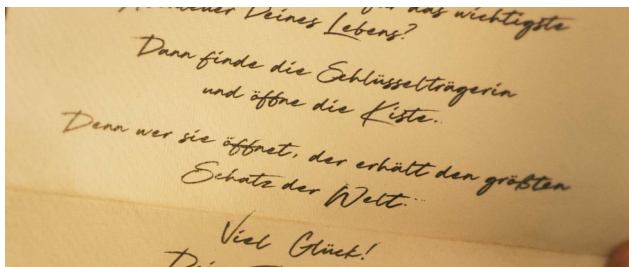 das wichtigste
Abenteuer Deines Lebens?
Dann finde die Schlüsselträgerin
und öffne die Kiste.
Denn wer sie öffnet, der erhält den größten
Schatz der Welt...
Viel Glück!